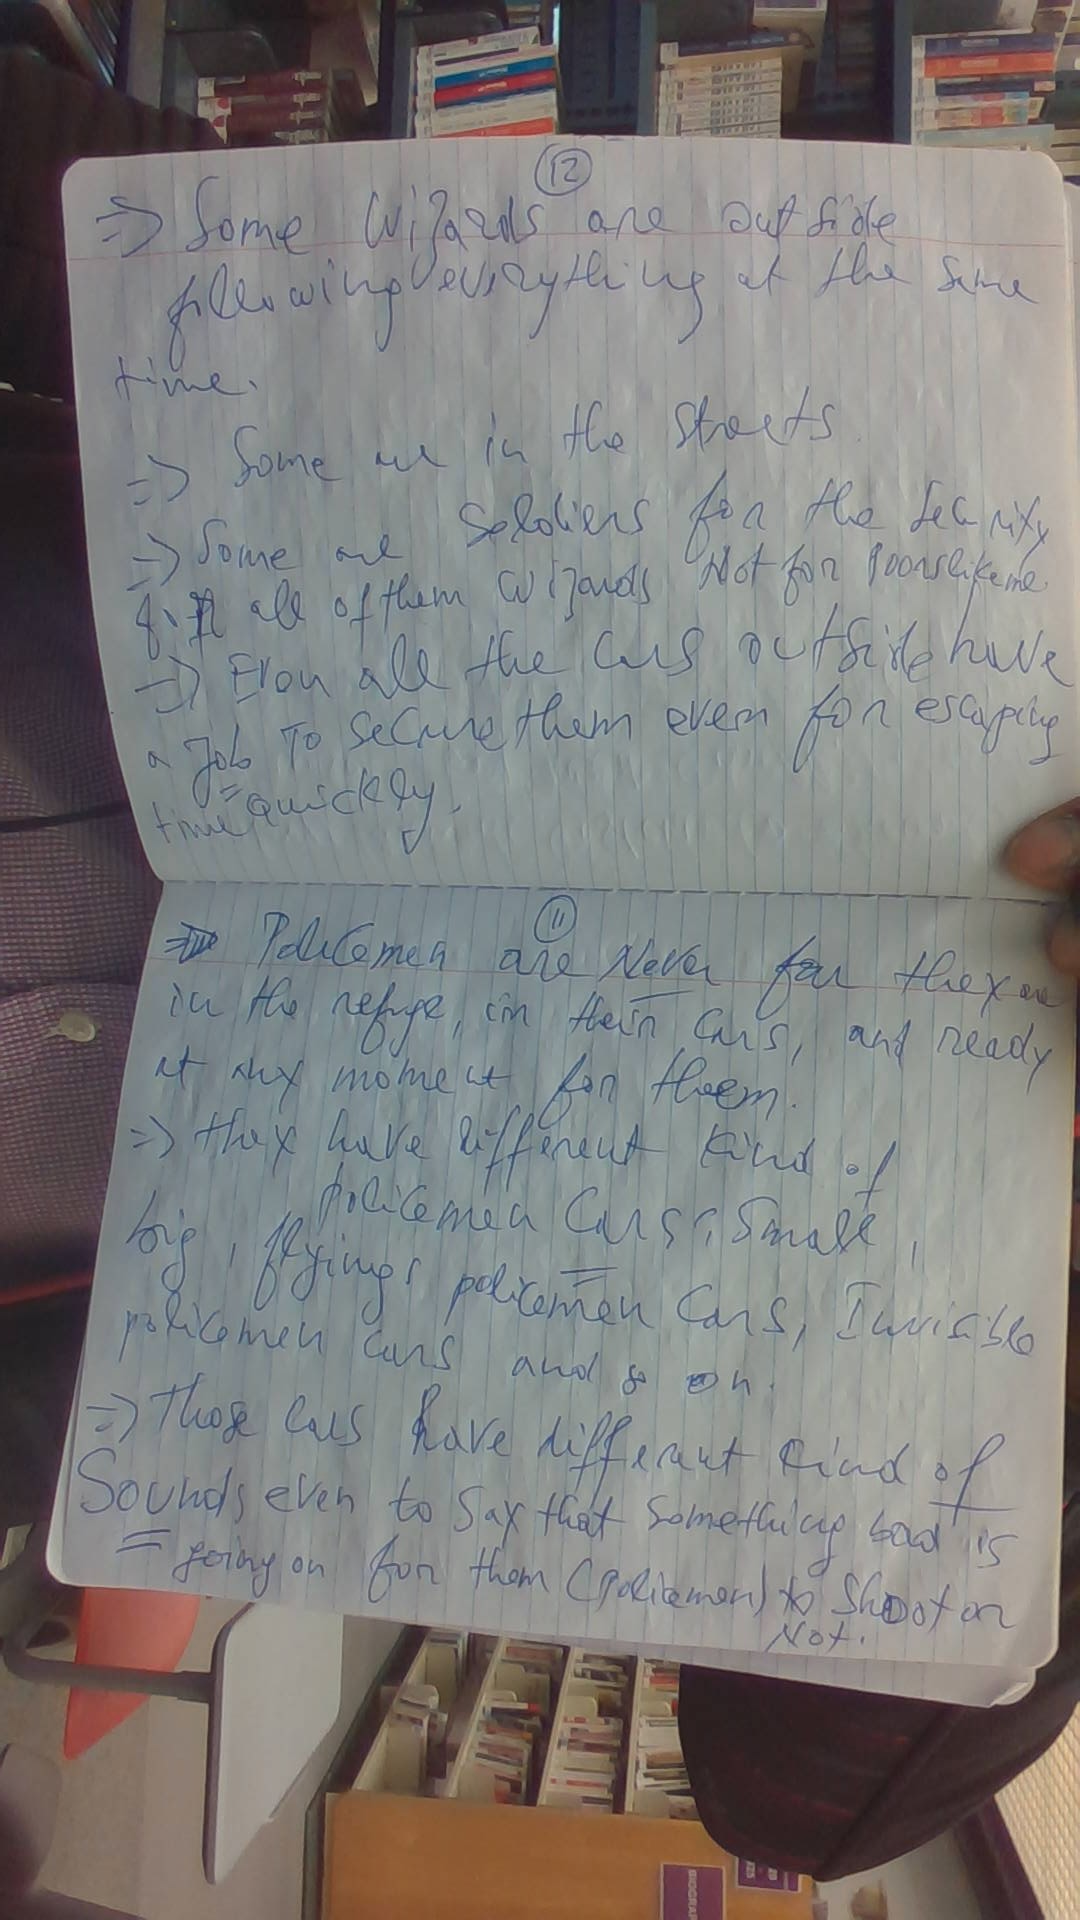 12
=> Some Wizards are outside
following everything at the same
time.
=> Some are in the streets
=> Some are Soldiers for the Security
all of them Wizards Not for Poorslikeme
=> Even all the Cars outside have
a Job To Secure them even for escaping
time quickly.
11
Policemen are Never far they are
in the refuge, in their Cars, and ready
at any moment for them.
=> they have different Kind of
policemen Cars, Small,
big, flyings policemen Cars, Invisible
policemen cars and so on.
=> Those Cars have different Kind of
Sounds even to Say that Something bad is
going on for them (Policemen) to Shoot or
Not.
BIOGRAP